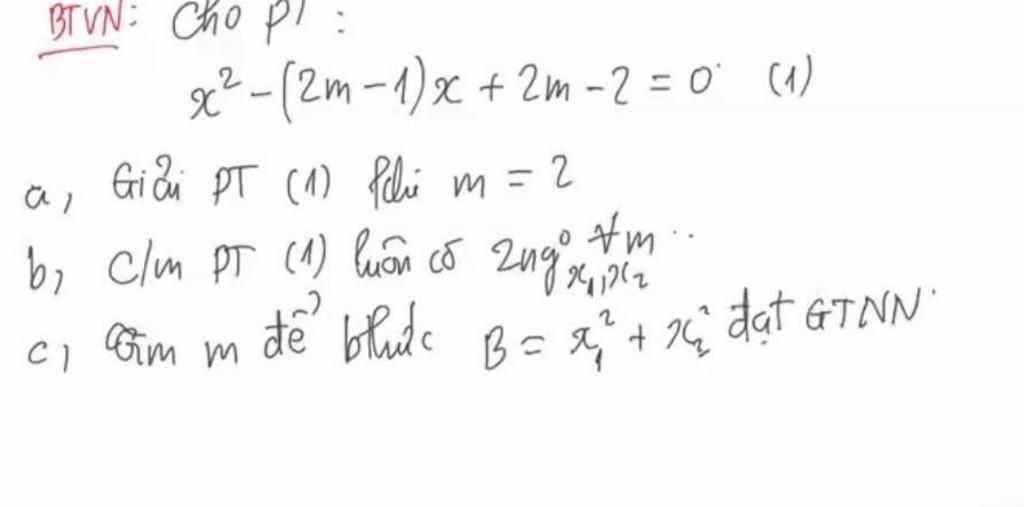 BTVN: Cho PT:
x² - (2m - 1)x + 2m - 2 = 0 (1)
a, Giải PT (1) khi m = 2
b, c/m PT (1) luôn có 2 ng⁰ x₁, x₂ ∀m
c, Tìm m để bthức B = x₁² + x₂² đạt GTNN.